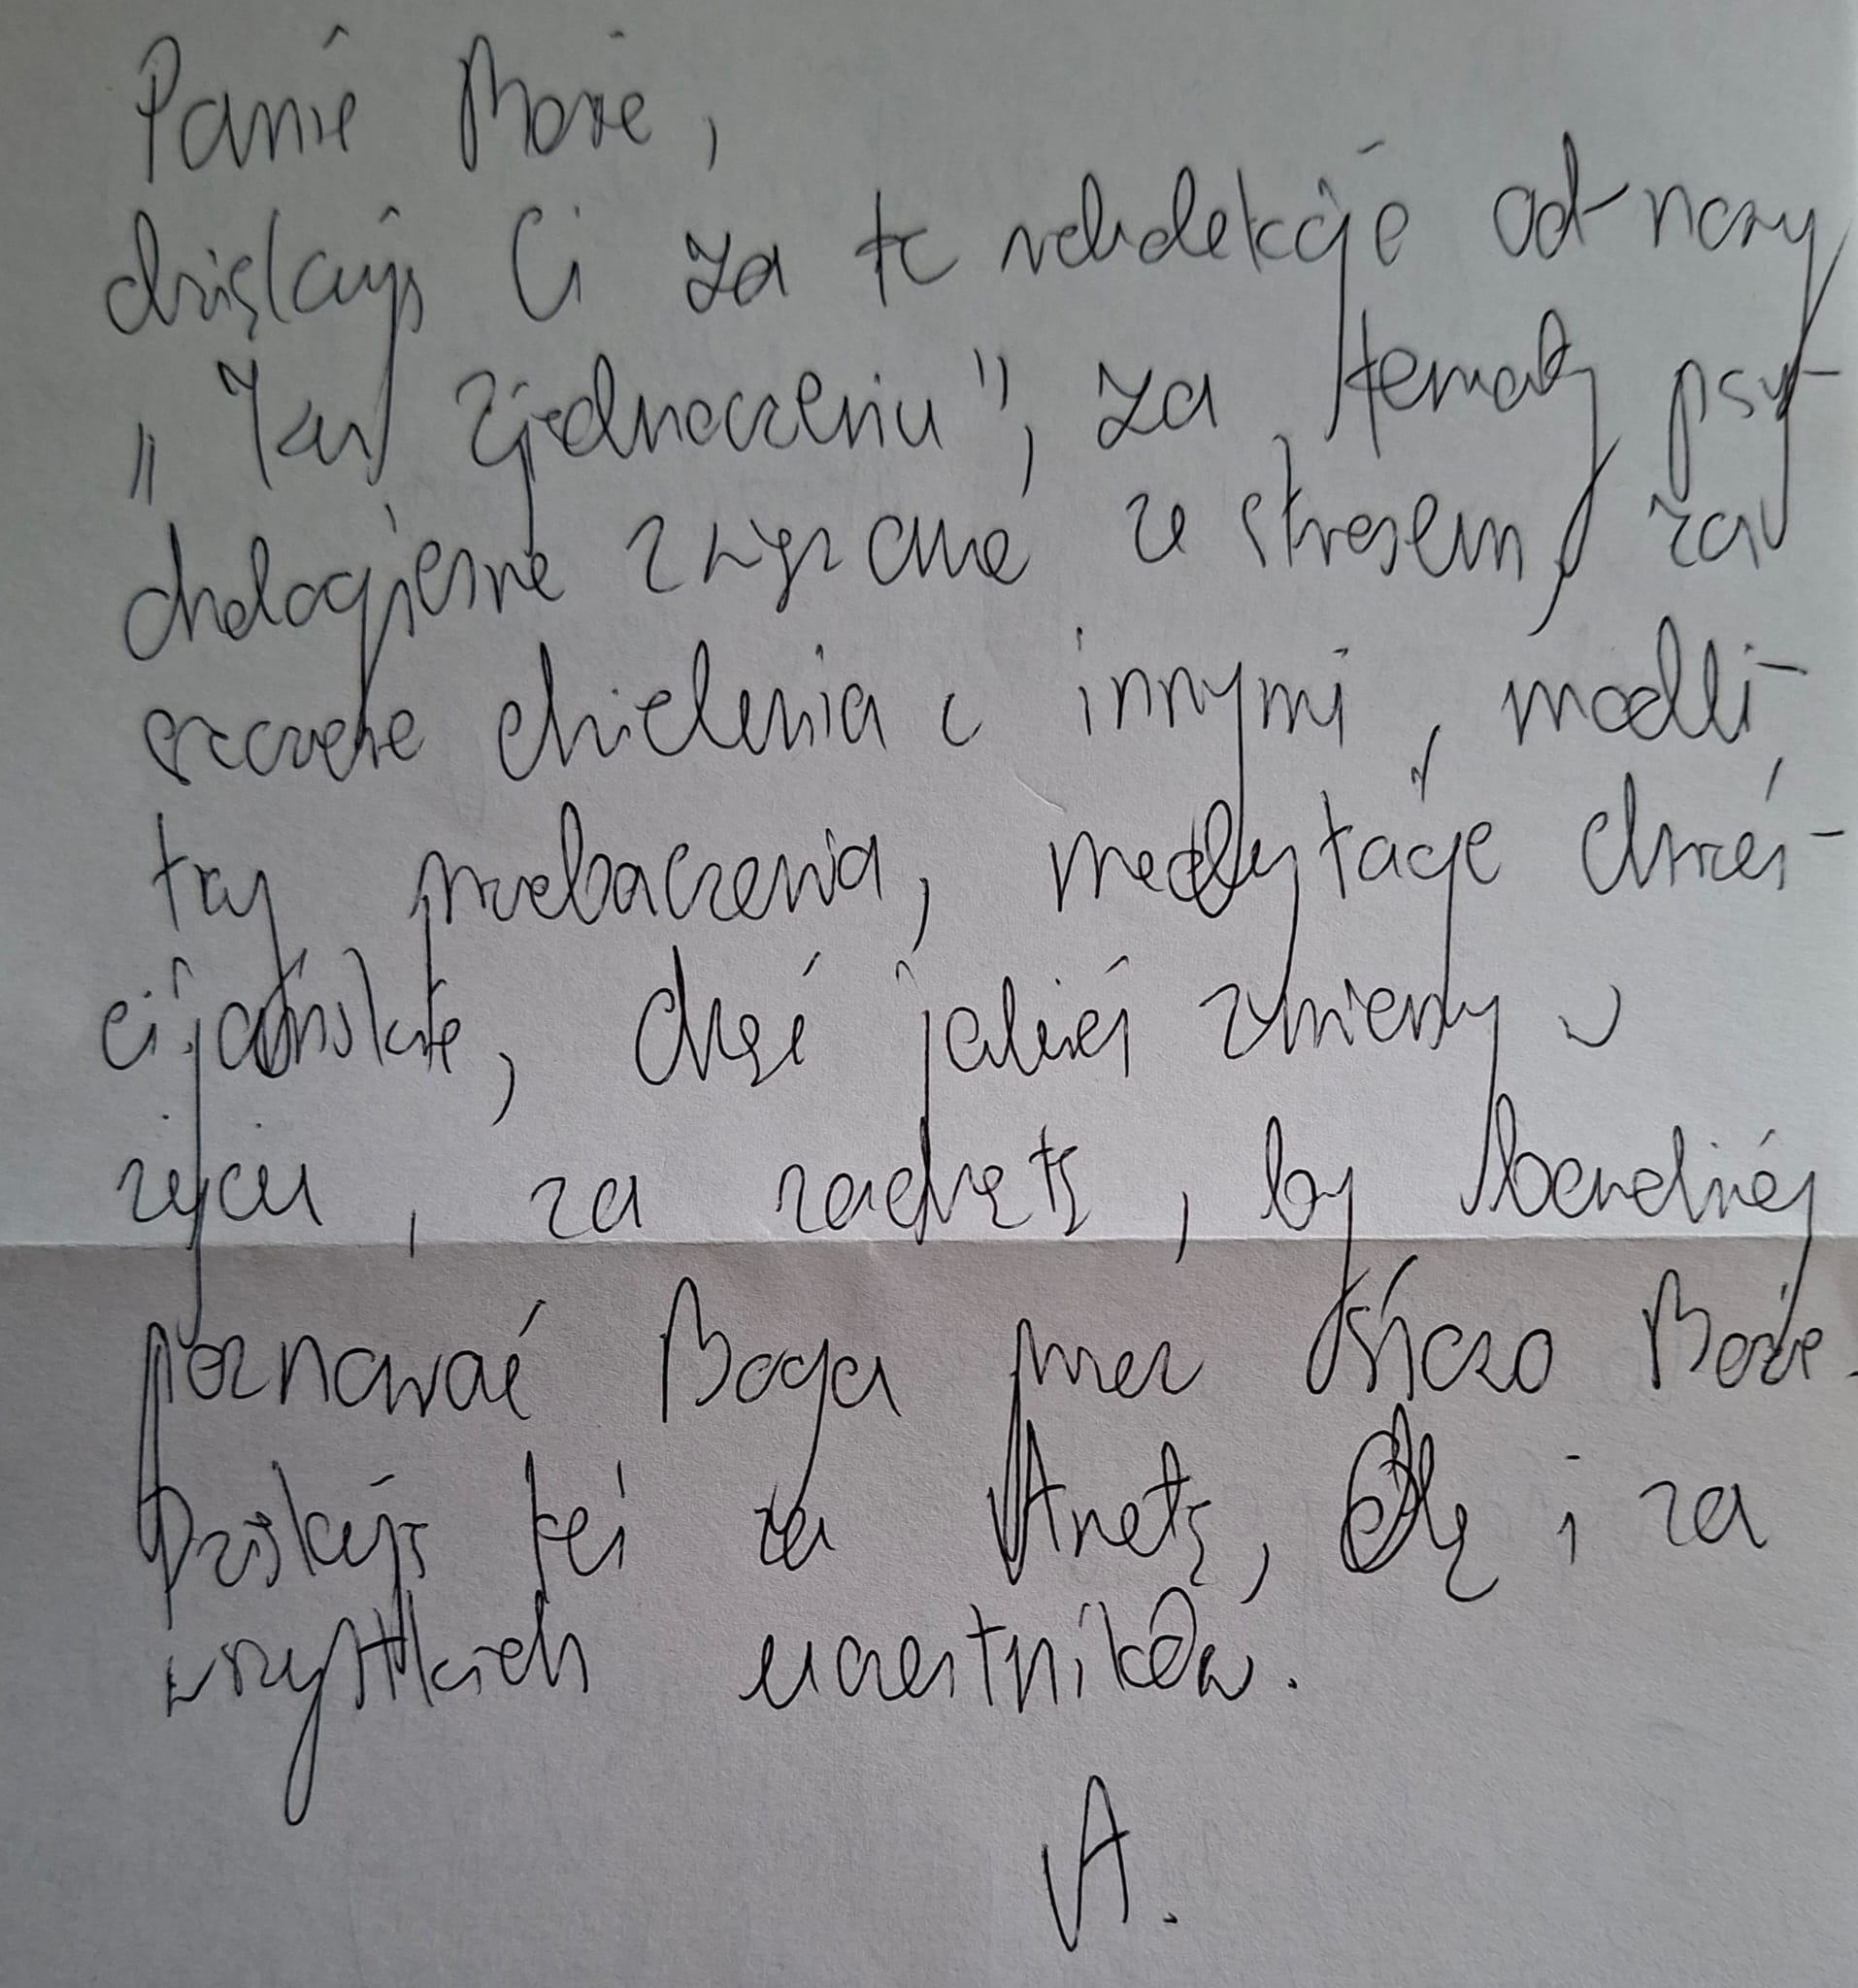 Panie Boże,
dziękuję Ci za te rekolekcje od nazwy
„Ku zjednoczeniu", za tematy psy-
chologiczne związane ze stresem, za
szczere dzielenia z innymi, modli-
twy przebaczenia, medytacje chrześ-
cijańskie, chęć jakiejś zmiany w
życiu, za zachętę, by bardziej
poznawać Boga przez Słowo Boże.
Dziękuję też za Anetę, Olę i za
wszystkich uczestników.
A.